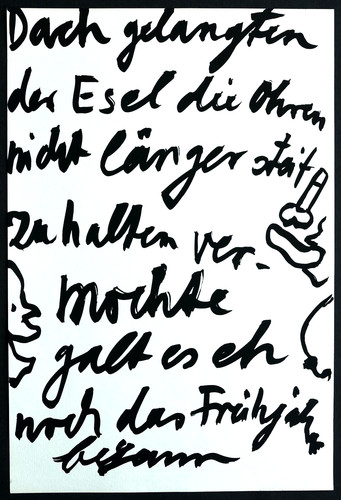 Doch gelangten
der Esel die Ohren
nicht länger steif
zu halten ver-
mochte
galt es eh
noch das Frühjahr
begann